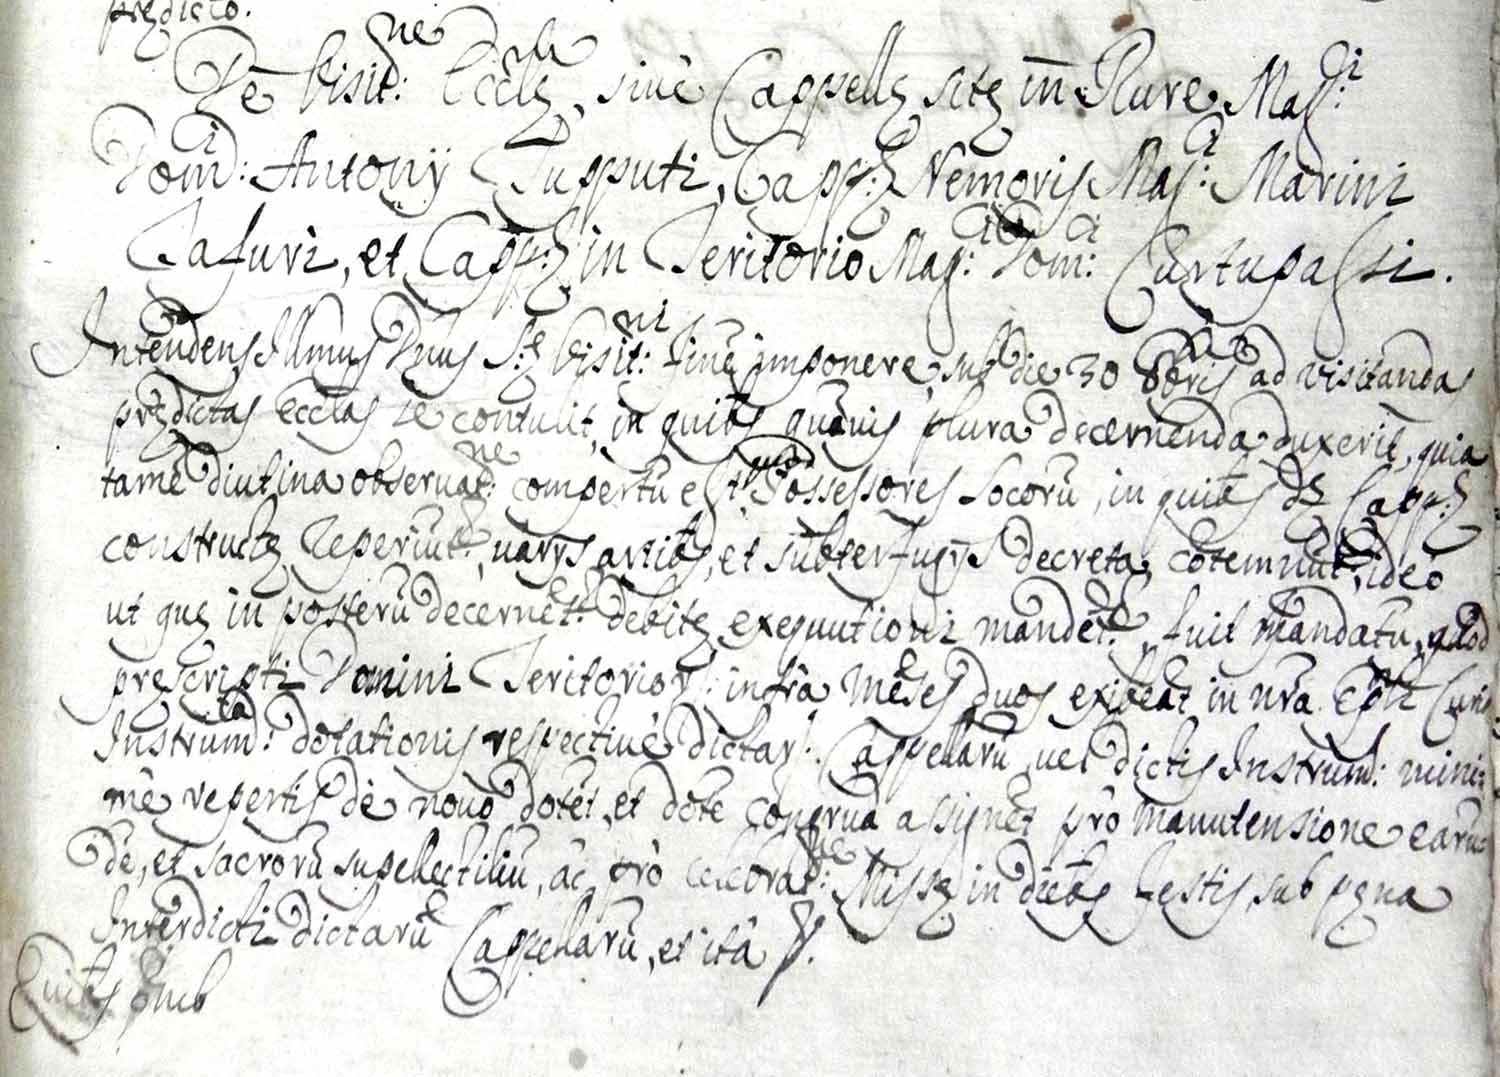 prędicto.
De Visit:ne Eccłę, sivè Cappellę sitę in Rure Mag:ci
Dom:ci Antonij Tupputi, Capp:ę Nemoris Mag:ci Marini
Tafuri, et Capp:ę in Teritorio Mag:ci Dom:ci Curtupassi.
Intendens Illmus Dnus S:ę Visit:ni finē imponere, sub die 30 8bris ad visitandas
prędictas Ecclas se contulit, in quibs quāvis plura decernenda duxerit, quia
tamē diutina observat:ne compertū est Possessores locorū, in quibs dę Capp:ę
constructę reperiūt:, varijs artibs, et subterfugijs decreta cōtemnūt, ideò
ut quę in posterū decernēt: debitę exequutioni mandēt:, fuit mandatū, quod
prescripti Domini Teritorior: infrà mēses duos exibeāt in nrā Epłi Curia
Instrum:ta dotationis respectivè dictar: Cappellarū, vel dictis Instrum: mini=
mè repertis dè novo dotēt, et dotē congruā assignēt prò manutensione earū=
dē, et sacrorū supellectiliū, ac prò celebrat:ne Missę in diebs festis, sub pęna
Interdicti dictarū Cappellarū, et ità
Quibs